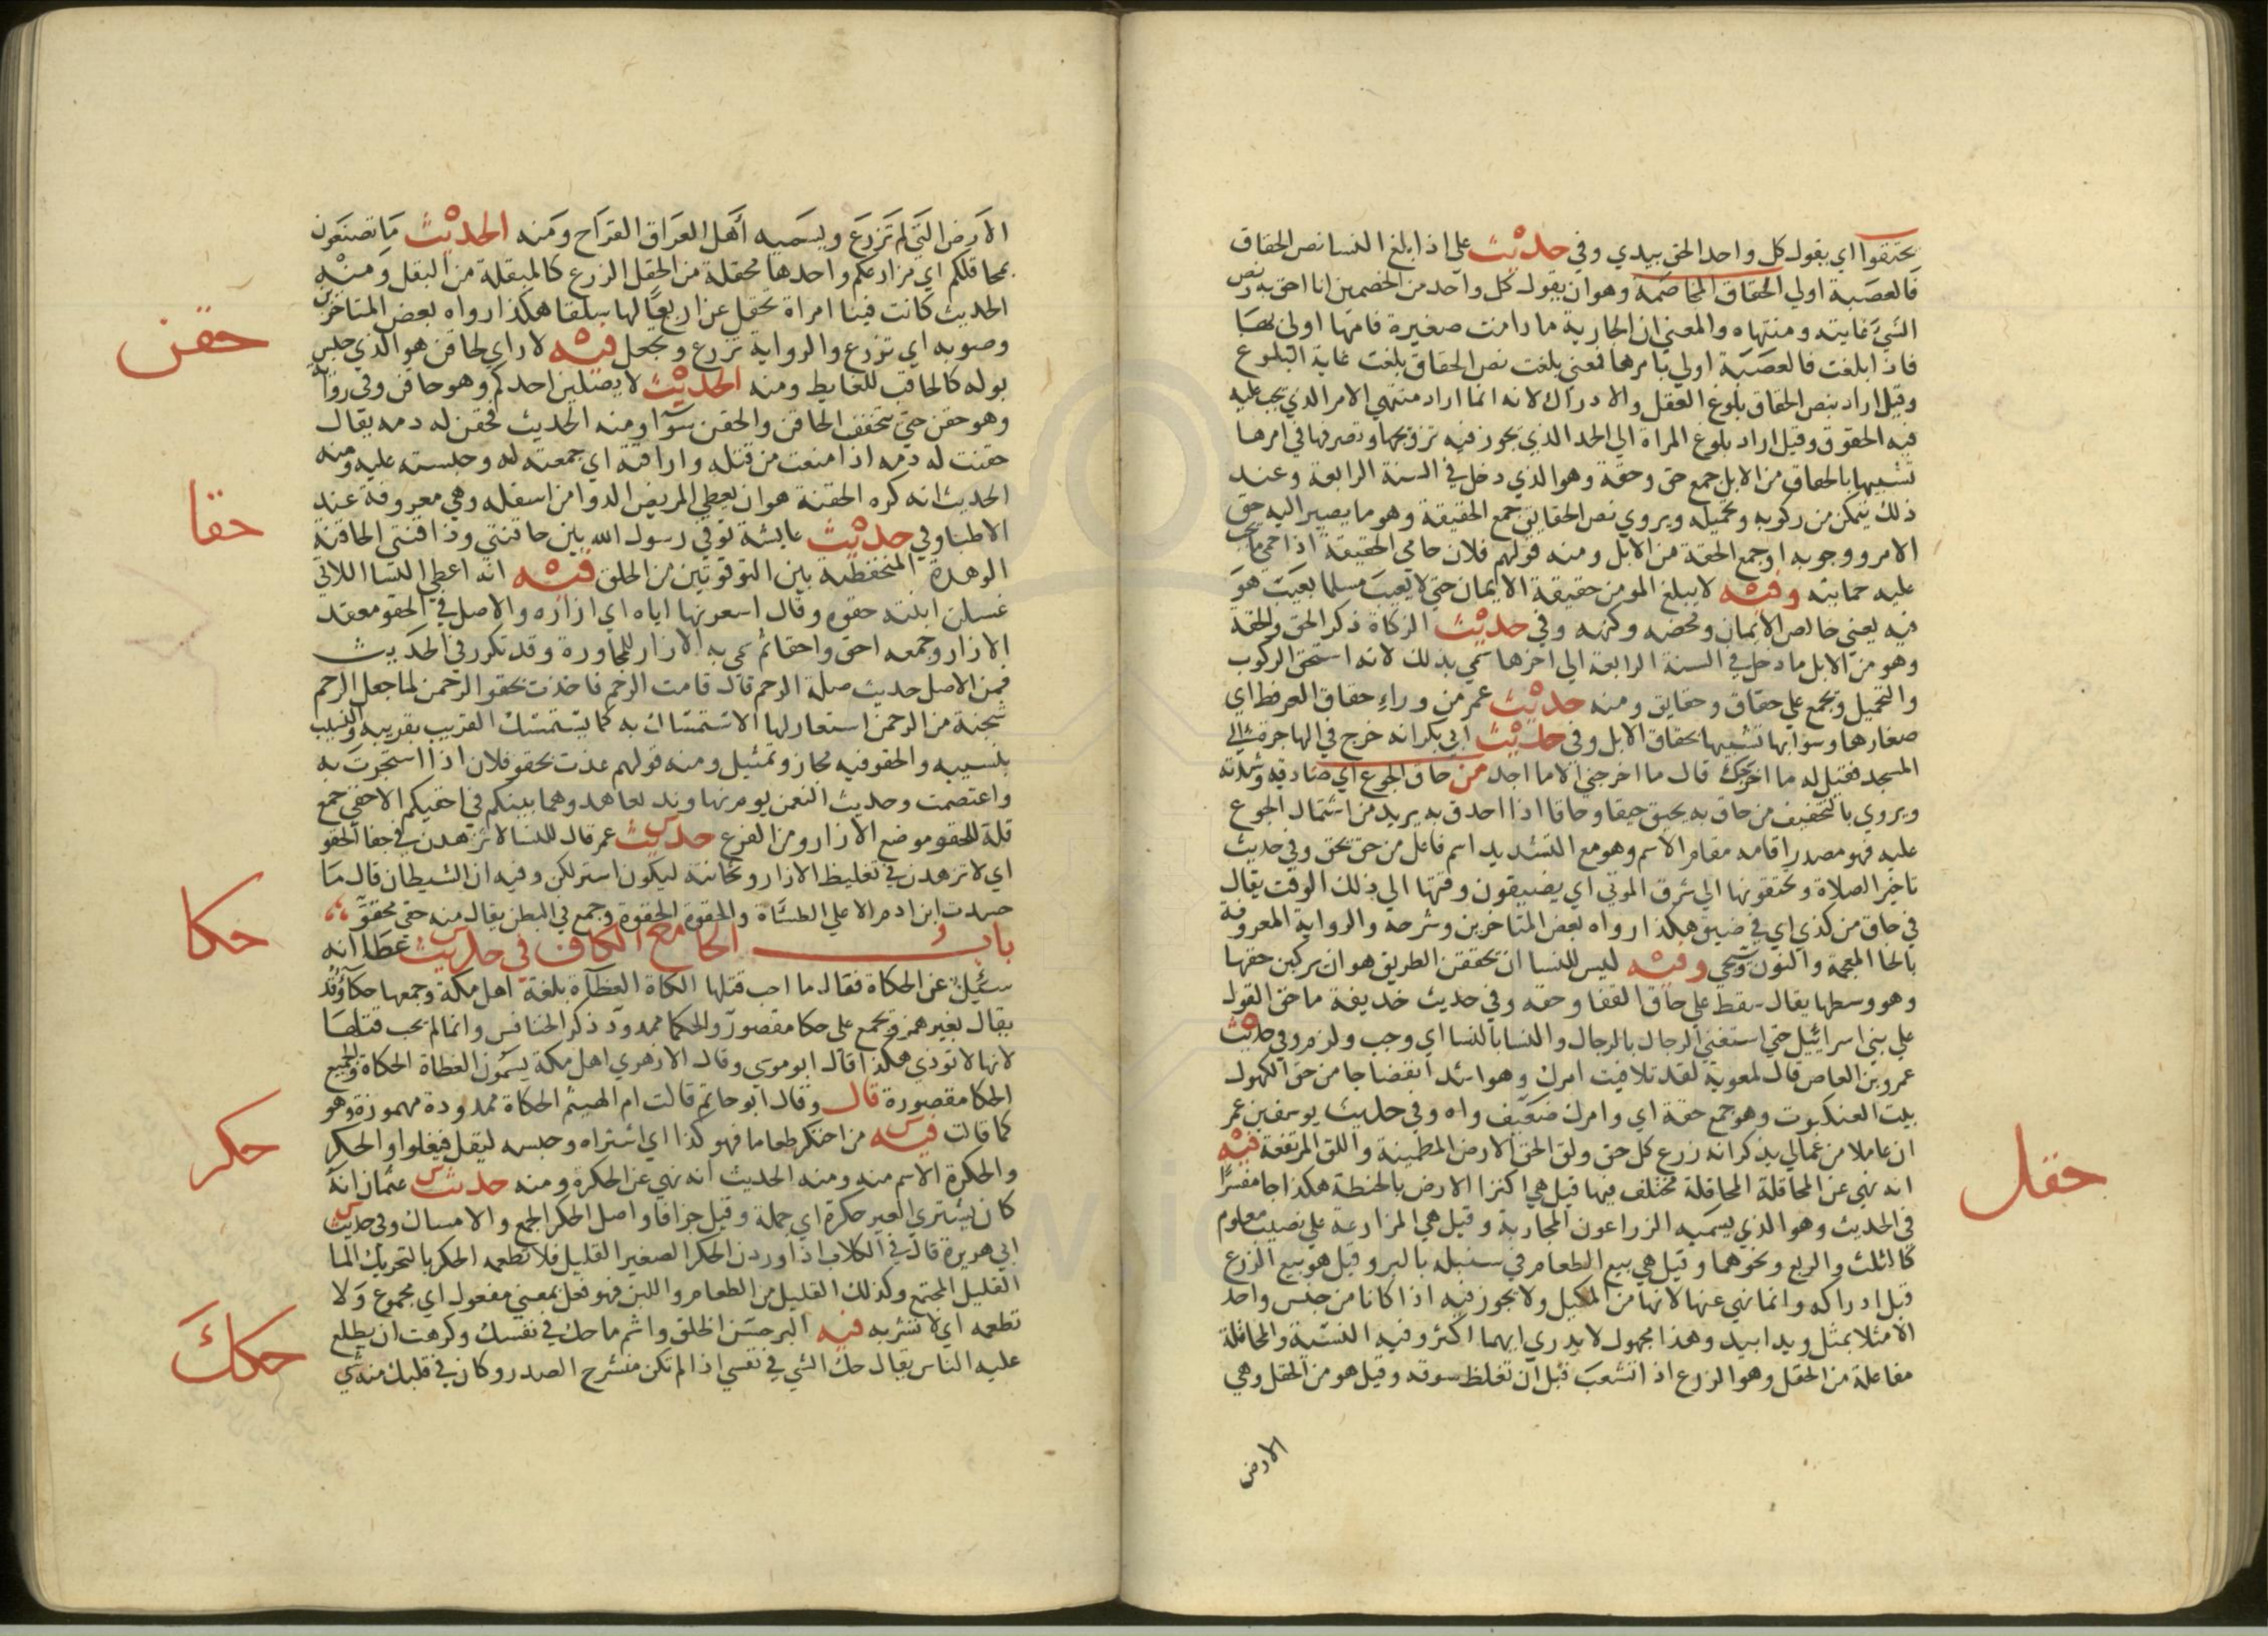 يحتقوا اي يقول كل واحد الحق بيدي وفي حديث علي اذا بلغ النسا نص الحقاق
فالعصبة اولي الحقاق المخاصمة وهو ان يقول كل واحد من الخصمين انا احق به ونص
الشي غايته ومنتهاه والمعني ان الجارية ما دامت صغيرة فامها اولي بها
فاذا بلغت فالعصبة اولي بامرها فمعني بلغت نص الحقاق بلغت غاية البلوغ
وقيل اراد بنص الحقاق بلوغ العقل والادراك لانه انما اراد منتهي الامر الذي تجب عليه
فيه الحقوق وقيل اراد بلوغ المراة الي الحد الذي يجوز فيه تزويجها وتصرفها في امرها
تشبيها بالحقاق من الابل جمع حق وحقة وهو الذي دخل في السنة الرابعة وعند
ذلك يتمكن من ركوبه وتحميله ويروي نص الحقايق جمع الحقيقة وهو ما يصير اليه حق
الامر ووجوبه او جمع الحقة من الابل ومنه قولهم فلان حامي الحقيقة اذا حمي ما يجب
عليه حمايته وفيه لا يبلغ المومن حقيقة الايمان حتي لا يعيب مسلما بعيب هو
فيه يعني خالص الايمان ومحضه وكنهه وفي حديث الزكاة ذكر الحق والحقة
وهو من الابل ما دخل في السنة الرابعة الي اخرها سمي بذلك لانه استحق الركوب
والتحميل وتجمع علي حقاق وحقايق ومنه حديث عمر من وراء حقاق العرفط اي
صغارها وشوابها تشبيها بحقاق الابل وفي حديث ابي بكر انه خرج في الهاجرة الي
المسجد فقيل له ما اخرجك قال ما اخرجني الا ما اجد من حاق الجوع اي صادقه وشدته
ويروي بالتخفيف من حاق به يحيق حيقا وحاقا اذا احدق به يريد من اشتمال الجوع
عليه فهو مصدر اقامه مقام الاسم وهو مع التشديد اسم فاعل من حق يحق وفي حديث
تاخير الصلاة وتحتقونها الي شرق الموتي اي يضيقون وقتها الي ذلك الوقت يقال
في حاق من كذي اي في ضيق هكذا رواه بعض المتاخرين وشرحه والرواية المعروفة
بالخا المعجمة والنون وسيجي وفيه ليس للنسا ان يحققن الطريق هو ان يركبن حقها
وهو وسطها يقال سقط علي حاق القفا وحقه وفي حديث حذيفة ما حق القول
علي بني اسرائيل حتي استغني الرجال بالرجال والنسا بالنسا اي وجب ولزم وفي حديث
عمرو بن العاص قال لمعوية لقد تلافيت امرك وهو اشد انفضاجا من حق الكهول
بيت العنكبوت وهو جمع حقة اي وامرك ضعيف واه وفي حديث يوسف بن عمر
ان عاملا من عمالي يذكر انه زرع كل حق ولق الحق الارض المطمينة واللق المرتفعة فيه
انه نهي عن المحاقلة المحاقلة مختلف فيها قيل هي اكترا الارض بالحنطة هكذا جا مفسرا
في الحديث وهو الذي يسميه الزراعون المجاربة وقيل هي المزارعة علي نصيب معلوم
كالثلث والربع ونحوهما وقيل هي بيع الطعام في سنبله بالبر وقيل هو بيع الزرع
قبل ادراكه وانما نهي عنها لانها من المكيل ولا يجوز فيه اذا كانا من جنس واحد
الا مثلا بمثل ويدا بيد وهذا مجهول لا يدري ايهما اكثر وفيه النسية والمحاقلة
مفاعلة من الحقل وهو الزرع اذا تشعب قبل ان تغلظ سوقه وقيل هو من الحقل وهي
الارض
حقل
الارض التي لم تزرع ويسميه اهل العراق القراح ومنه الحديث ما تصنعون
بمحاقلكم اي مزارعكم واحدها محقلة من الحقل الزرع كالمبقلة من البقل ومنه
الحديث كانت فينا امراة تحقل عن اربعيا لها سلقا هكذا رواه بعض المتاخرين
وصوبه اي تزرع والرواية تزرع وتجعل فيه لا راي لحاقن هو الذي حبس
بوله كالحاقب للغايط ومنه الحديث لا يصلين احدكم وهو حاقن وفي رواية
وهو حقن حتي يتخفف الحاقن والحقن سوآ ومنه الحديث فحقن له دمه يقال
حقنت له دمه اذا منعت من قتله واراقته اي جمعته له وحبسته عليه ومنه
الحديث انه كره الحقنة هو ان يعطي المريض الدوا من اسفله وهي معروفة عند
الاطبا وفي حديث عايشة توفي رسول الله بين حاقنتي وذاقنتي الحاقنة
الوهدة المنخفظة بين الترقوتين من الحلق فيه انه اعطي النسا اللاتي
غسلن ابنته حقوه وقال اشعرنها اياه اي ازاره والاصل في الحقو معقد
الازار وجمعه احق واحقا ثم سمي به الازار للمجاورة وقد تكرر في الحديث
فمن الاصل حديث صلة الرحم قال قامت الرحم فاخذت بحقو الرحمن لما جعل الرحم
شجنة من الرحمن استعار لها الاستمساك به كما يستمسك القريب بقريبه والنسيب
بنسيبه والحقو فيه مجاز وتمثيل ومنه قولهم عذت بحقو فلان اذا استجرت به
واعتصمت وحديث النعمن يوم نهاوند تعاهدوا هما بينكم في احقيكم الاحقي جمع
قلة للحقو موضع الازار ومن الفرع حديث عمر قال للنسا لا تزهدن في جفا الحقو
اي لا تزهدن في تغليظ الازار وثخانته ليكون استر لكن وفيه ان الشيطان قال ما
حسدت ابن ادم الا علي الطسأة والحقوة الحقوة وجع في البطن يقال منه حقي محقوّ
باب الحا مع الكاف في حديث عطا انه
سئيل عن الحكاة فقال ما احب قتلها الحكاة العظآة بلغة اهل مكة وجمعها حكآ وقد
يقال بغير همز ويجمع علي حكا مقصور والحكا ممدود ذكر الخنافس وانما لم يحب قتلها
لانها لا توذي هكذا قال ابو موسي وقال الازهري اهل مكة يسمون العظاة الحكاة والجميع
الحكا مقصورة قال وقال ابو حاتم قالت ام الهيثم الحكاة ممدودة مهموزة وهو
كما قالت فيه من احتكر طعاما فهو كذا اي اشتراه وحبسه ليقل فيغلوا والحكر
والحكرة الاسم منه ومنه الحديث انه نهي عن الحكرة ومنه حديث عثمان انه
كان يشتري العير حكرة اي جملة وقيل جزافا واصل الحكر الجمع والامساك وفي حديث
ابي هريرة قال في الكلاب اذا وردن الحكر الصغير القليل فلا تطعمه الحكر بالتحريك الما
القليل المجتمع وكذلك القليل من الطعام واللبن فهو فعل بمعني مفعول اي مجموع ولا
تطعمه اي لا تشربه فيه البر حسن الخلق واثم ما حك في نفسك وكرهت ان يطلع
عليه الناس يقال حك الشي في نفسي اذا لم تكن منشرح الصدر وكان في قلبك منه شي
حقن
حقا
حكا
حكر
حكك